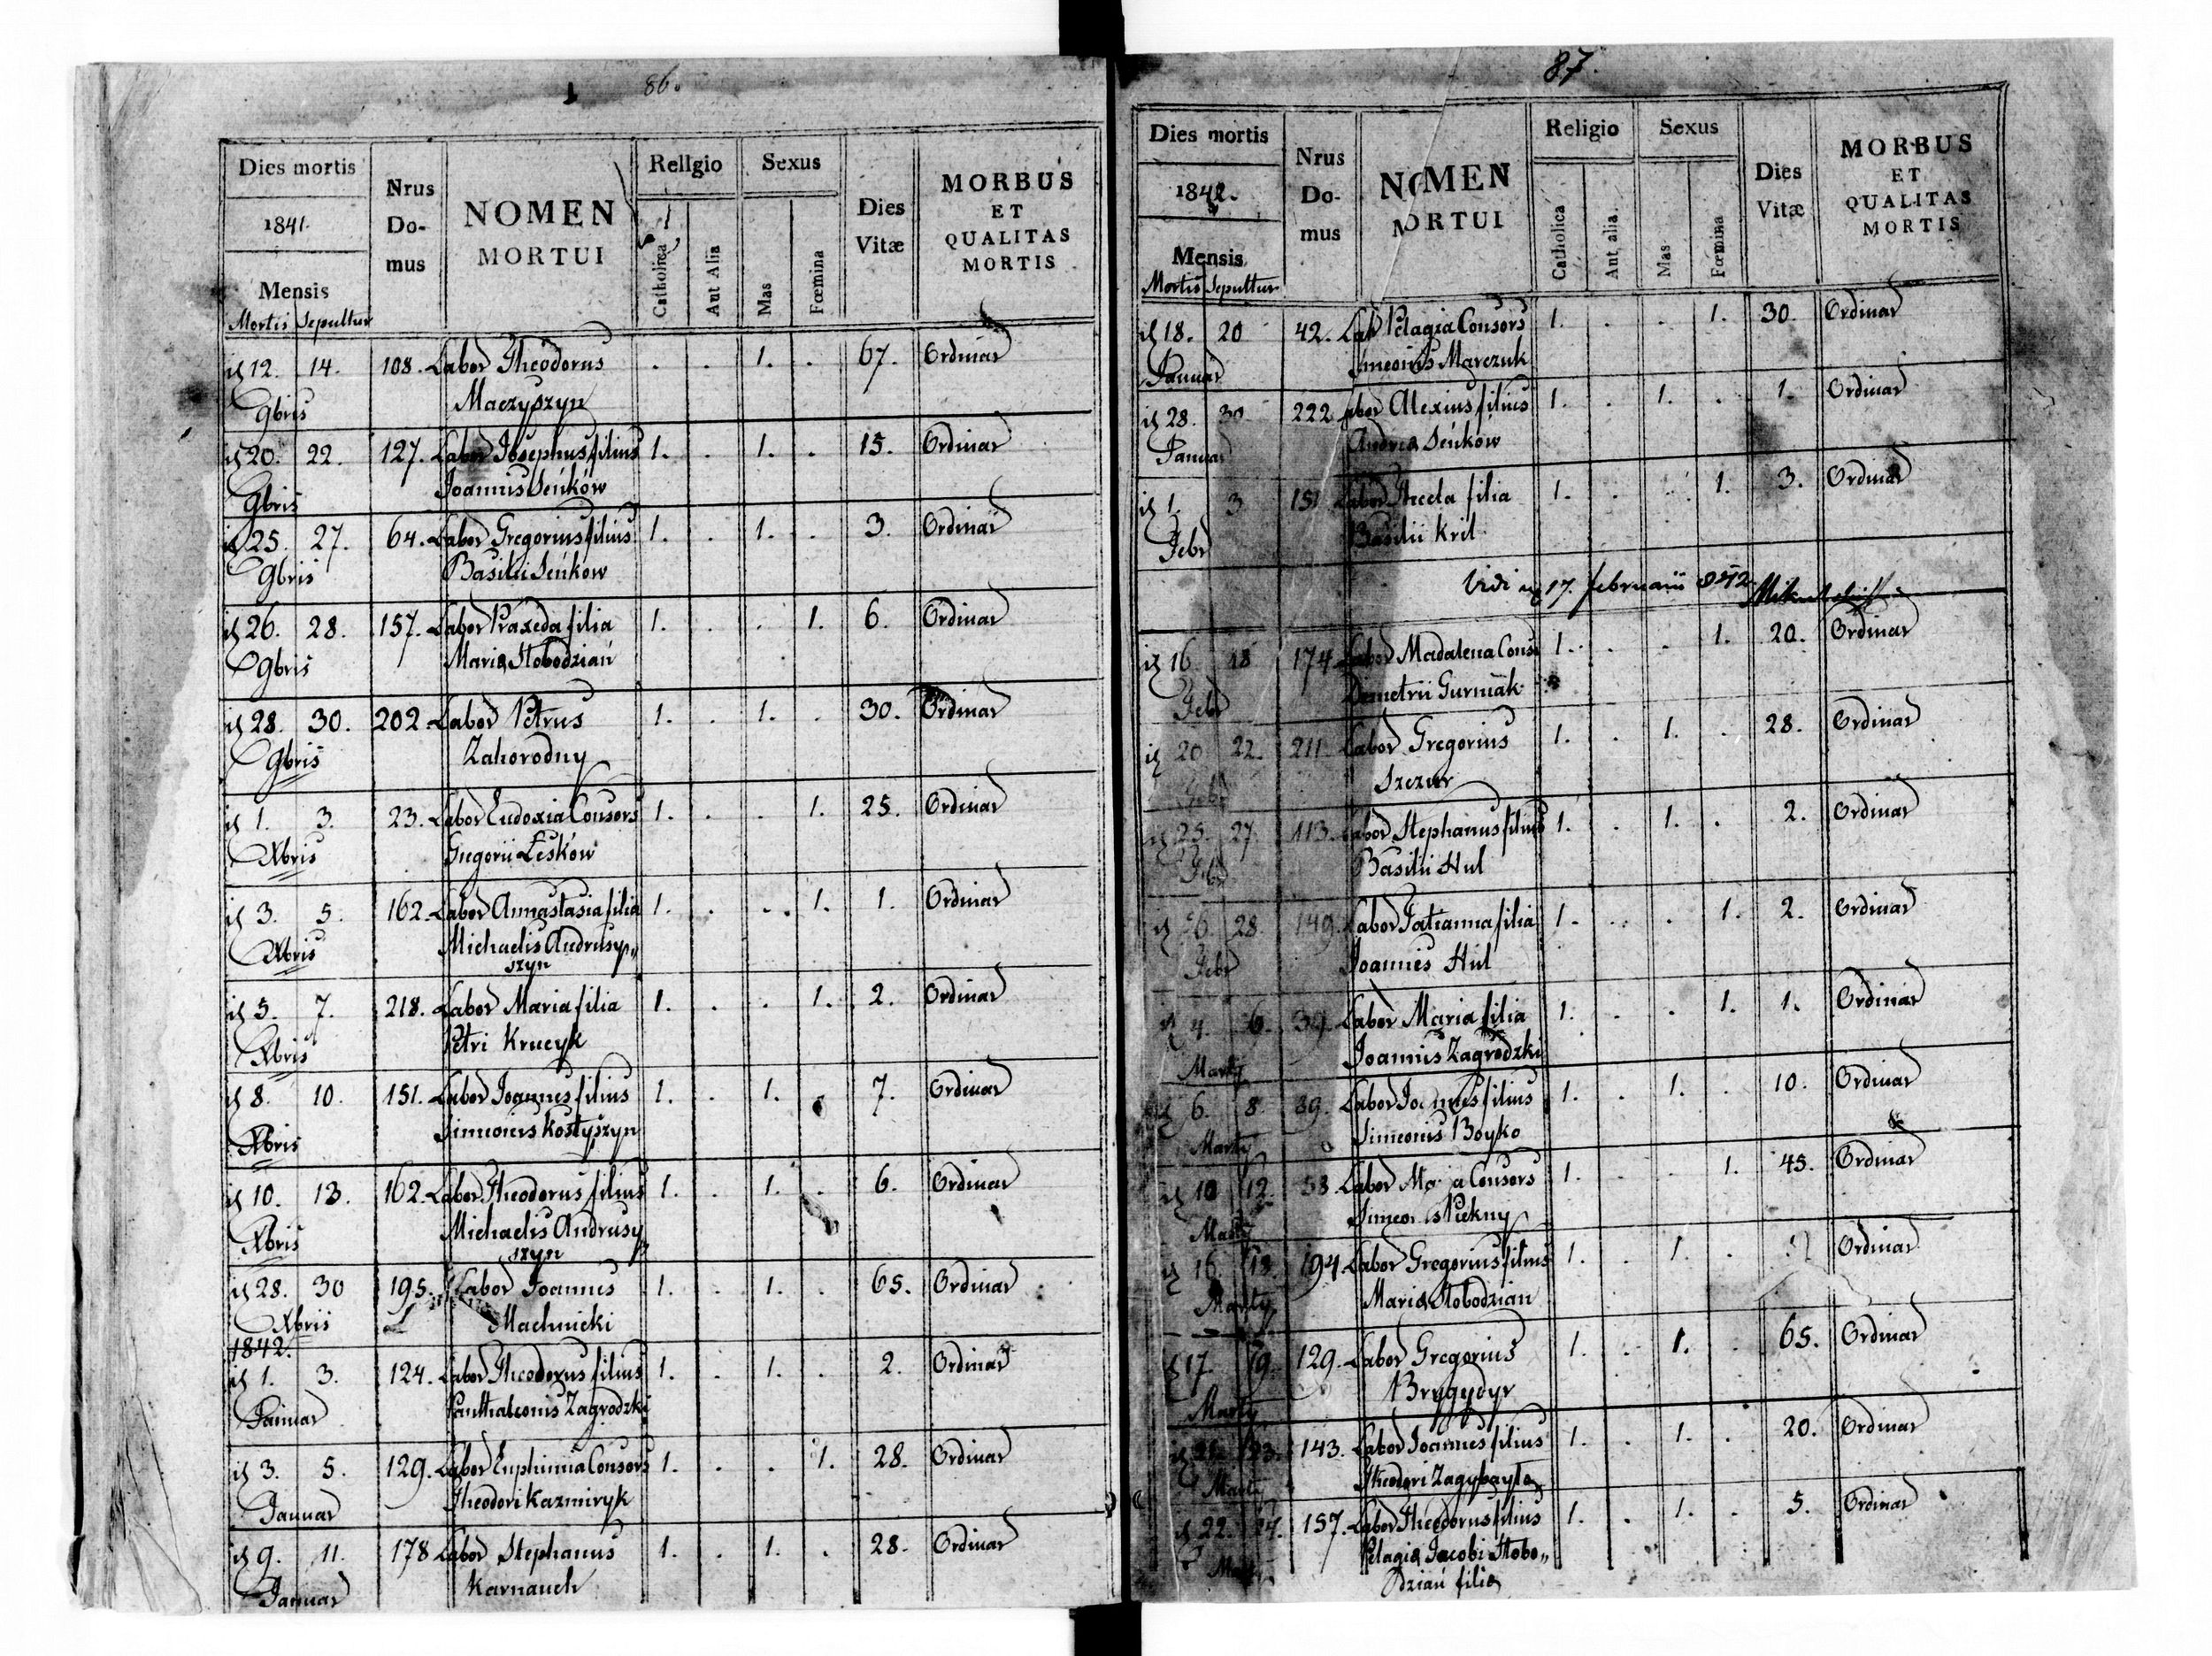 86.
Dies mortis
1841.
Mensis
Mortis Sepultur
Nrus
Do-
mus
NOMEN
MORTUI
Religio
Catholica
Aut Alia
Sexus
Mas
Fœmina
Dies
Vitæ
MORBUS
ET
QUALITAS
MORTIS
12. 14. 108. Labor Theodorus . . 1. . 67. Ordinar
9bris Maczyszyn
20. 22. 127. Labor Josephus filius 1. . 1. . 15. Ordinar
9bris Joannis Seńków
25. 27. 64. Labor Gregorius filius 1. . 1. . 3. Ordinar
9bris Basilii Seńków
26. 28. 157. Labor Praxeda filia 1. . . 1. 6. Ordinar
9bris Maria Słobodzian
28. 30. 202. Labor Petrus 1. . 1. . 30. Ordinar
9bris Zahorodny
1. 3. 23. Labor Eudoxia Consors 1. . . 1. 25. Ordinar
Xbris Gregorii Leśków
3. 5. 162. Labor Annastasia filia 1. . . 1. 1. Ordinar
Xbris Michaelis Andrusy„
szyn
5. 7. 218. Labor Maria filia 1. . . 1. 2. Ordinar
Xbris Petri Krucyk
8. 10. 151. Labor Joannes filius 1. . 1. . 7. Ordinar
Xbris Simeonis Kostyszyn
10. 13. 162. Labor Theodorus filius 1. . 1. . 6. Ordinar
Xbris Michaelis Andrusy
szyn
28. 30 195. Labor Joannes 1. . 1. . 65. Ordinar
Xbris Machnicki
1842.
1. 3. 124. Labor Theodorus filius 1. . 1. . 2. Ordinar
Januar Panthaleonis Zagrodzki
3. 5. 129. Labor Euphimia Consors 1. . . 1. 28. Ordinar
Januar Theodori Kazmiryk
9. 11. 178 Labor Stephanus 1. . 1. . 28. Ordinar
Januar Karnauch
87.
Dies mortis
1842.
Mensis
Mortis Sepultur
Nrus
Do-
mus
NOMEN
MORTUI
Religio
Catholica
Aut alia.
Sexus
Mas
Fœmina
Dies
Vitæ
MORBUS
ET
QUALITAS
MORTIS
18. 20 42. Lab Pelagia Consors 1. . . 1. 30. Ordinar
Januar Simeonis Marczuk
28. 30 222 Labor Alexius filius 1. . 1. . 1. Ordinar
Januar Andrea Seńków
1. 3 151 Labor Thecla filia 1. . . 1. 3. Ordinar
Febr Basilii Kril
Vidi 17. februarii 842
16 18 174 Labor Madalena Cons 1. . . 1. 20. Ordinar
Febr Demetrii Gurniak
20 22. 211 Labor Gregorius 1. . 1. . 28. Ordinar
Febr Szczur
25. 27. 113. Labor Stephanus filius 1. . 1. . 2. Ordinar
Febr Basilii Hul
26. 28. 149. Labor Tatianna filia 1. . . 1. 2. Ordinar
Febr Joannes Hul
4. 6. 39. Labor Maria filia 1. . . 1. 1. Ordinar
Marty Joannis Zagrodzki
6. 8. 89. Labor Joannes filius 1. . 1. . 10. Ordinar
Marty Simeonis Boyko
10 12. 58 Labor Maria Consors 1. . . 1. 45. Ordinar
Marty Simeonis Piekny
16. 18. 194 Labor Gregorius filius 1. . 1. . Ordinar
Marty Maria Słobodzian
17. 19. 129. Labor Gregorius 1. . 1. . 65. Ordinar
Marty Brygydyr
23. 143. Labor Joannes filius 1. . 1. . 20. Ordinar
Marty Theodori
22. 24. 157. Labor Theodorus filius 1. . 1. . 5. Ordinar
Pelagia Jacobi Słobo„
dzian filia